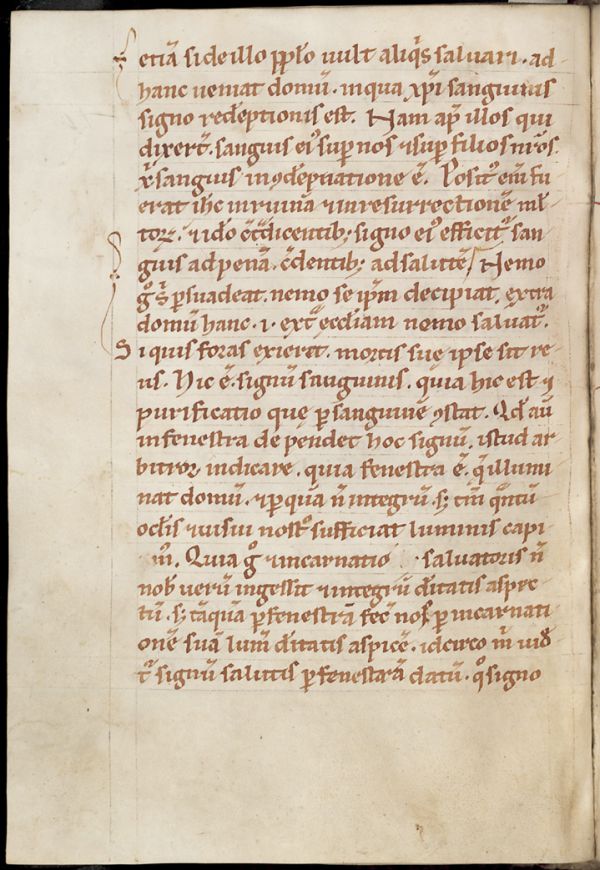 etiā si de illo pp̄lo uult aliq̄s saluari · ad
hanc ueniat domū · in qua xp̄i sanguinis
signo redēptionis est. Nam ap̄ illos qui
dixer̄t · sanguis ei᷒ sup̄ nos ⁊ sup̄ filios nr̄os ·
x̄ sanguis in ꝯdēpnatione ē. Posit᷒ eni᷒ fu
erat ih̄c in ruinā ⁊ in resurrectionē ml̄
torꝝ · ⁊ ido c̄t̄dicentib; signo ei᷒ efficit᷒ san
guis ad penā · c̄dentib; ad salutē / Nemo
g̊ s̄ ꝑsuadeat · nemo se ip̄m decipiat, extra
domū hanc · i · ext̄ ecc̄iam nemo saluat᷒.
Si quis foras exierit · mortis suę ipse fit re
us. Hic ē · signū sanguinis · quia hic est ⁊
purificatio quę ꝑ sanguinē ꝯstat. Qd̄ aū
in fenestra de pendet hoc signū, istud ar
bitror indicare, quia fenestra ē, q̄ illumi
nat domū · ⁊ ꝑ quā n̄ integrū · s; tm̄ q̊ntū
oc̄lis ⁊ uisui nost᷒ sufficiat luminis capi
m̄. Quia g̊ ⁊ incarnatio saluatoris n̄
nob̄ uerū ingessit ⁊ integrū d̄itatis aspec
tū · s; tāquā ꝑ fenestrā fec̄ nos ꝑ incarnati
onē suā lum̄ d̄itatis aspic̄e · idcirco m̄ uid̄
t᷒ signū salutis ꝑ fenestrarā datū · q̊ signo